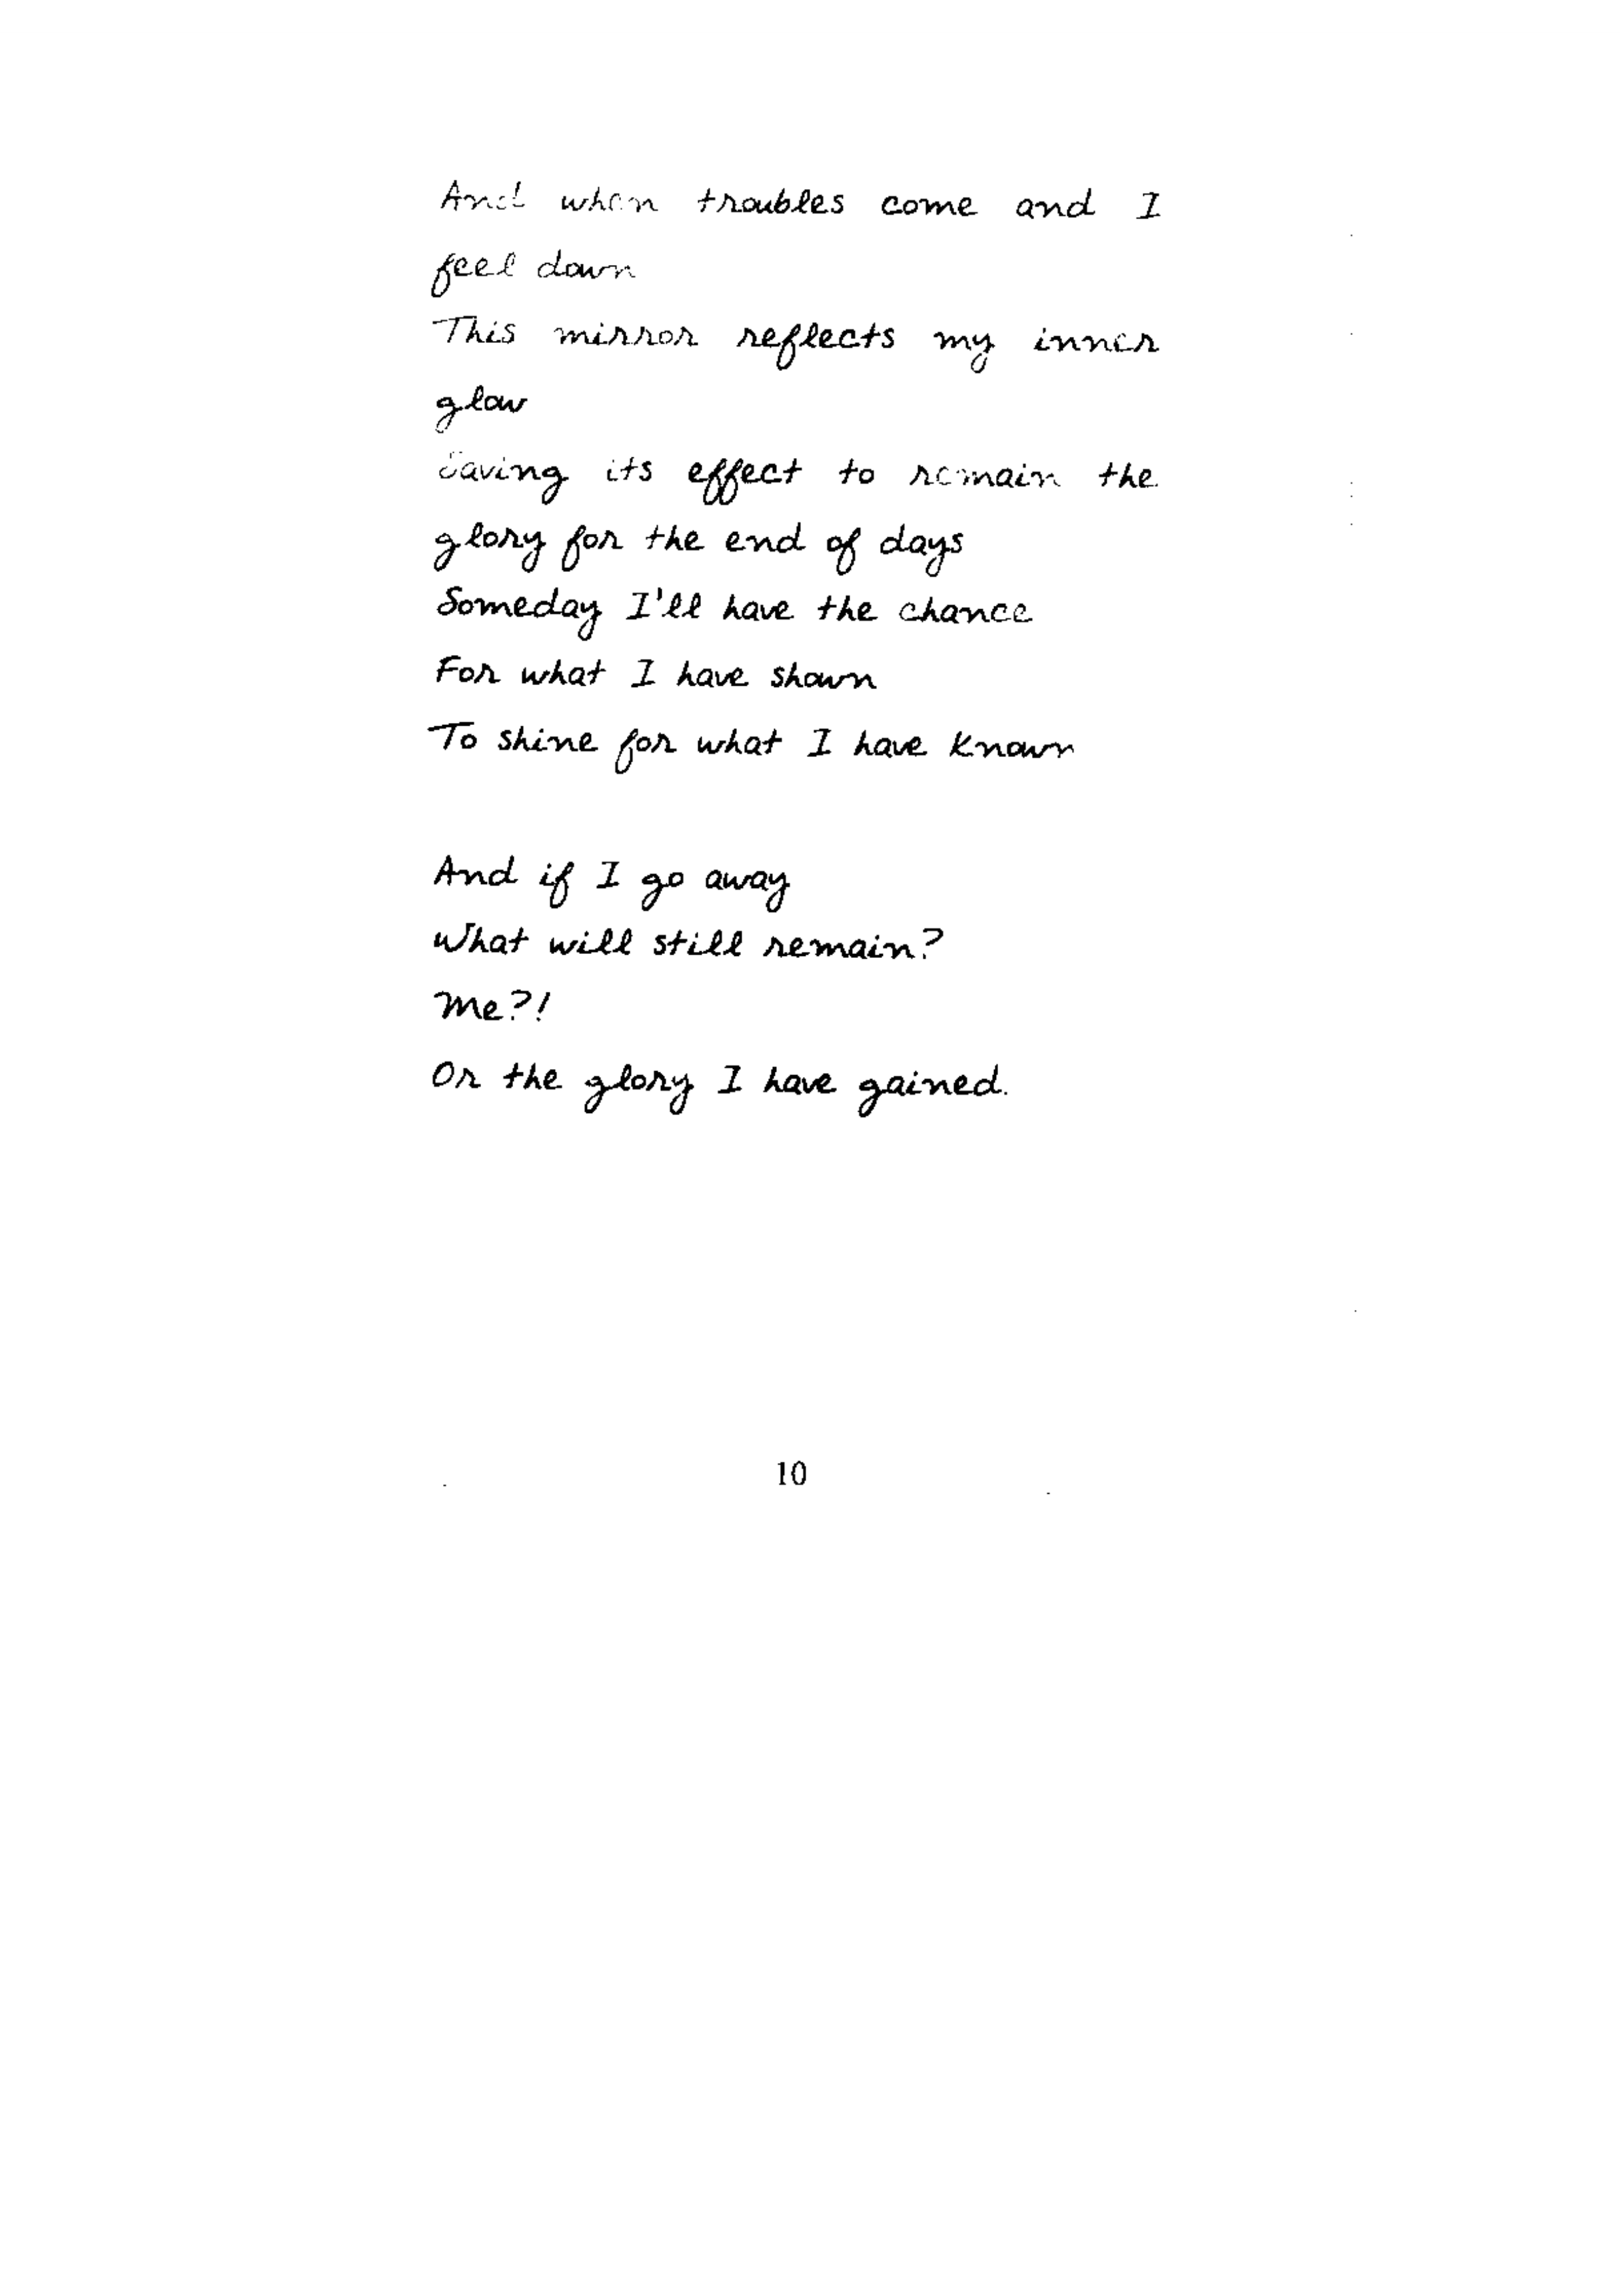 And when troubles come and I
feel down
This mirror reflects my inner
glow
Saving its effect to remain the
glory for the end of days
Someday I'll have the chance
For what I have shown
To shine for what I have known
And if I go away
What will still remain?
Me?!
Or the glory I have gained.
10